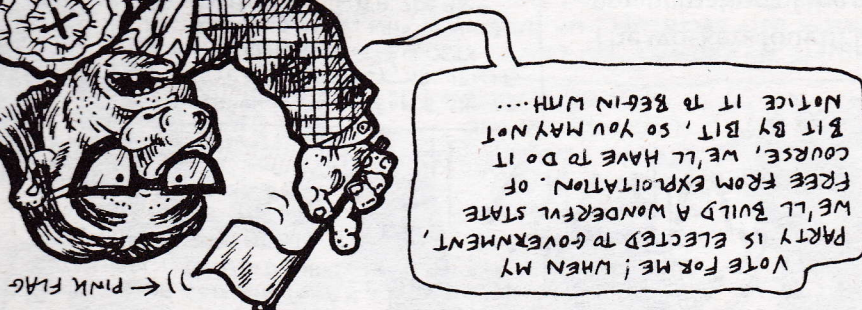 VOTE FOR ME! WHEN MY
PARTY IS ELECTED TO GOVERNMENT,
WE'LL BUILD A WONDERFUL STATE
FREE FROM EXPLOITATION. OF
COURSE, WE'LL HAVE TO DO IT
BIT BY BIT, SO YOU MAY NOT
NOTICE IT TO BEGIN WITH....
PINK FLAG